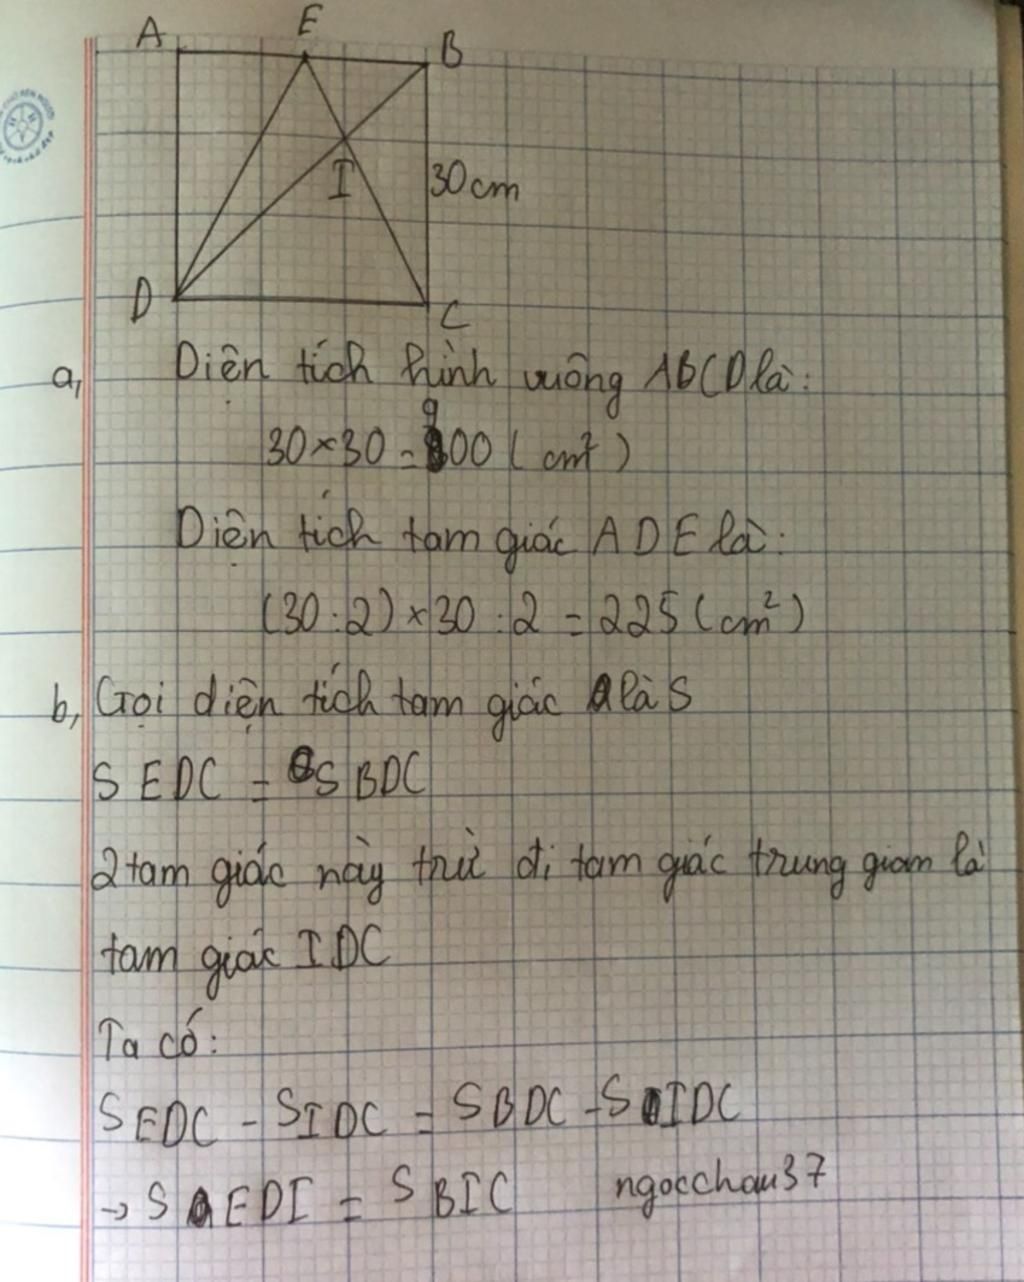 A E B
I
30cm
D C
a, Diện tích hình vuông ABCD là:
30×30=900 (cm²)
Diện tích tam giác ADE là:
(30:2)×30:2=225(cm²)
b, Gọi diện tích tam giác là S
SEDC = SBDC
2 tam giác này trừ đi tam giác trung gian là
tam giác IDC
Ta có:
SEDC - SIDC = SBDC - SIDC
→ SEDI = SBIC ngocchau37